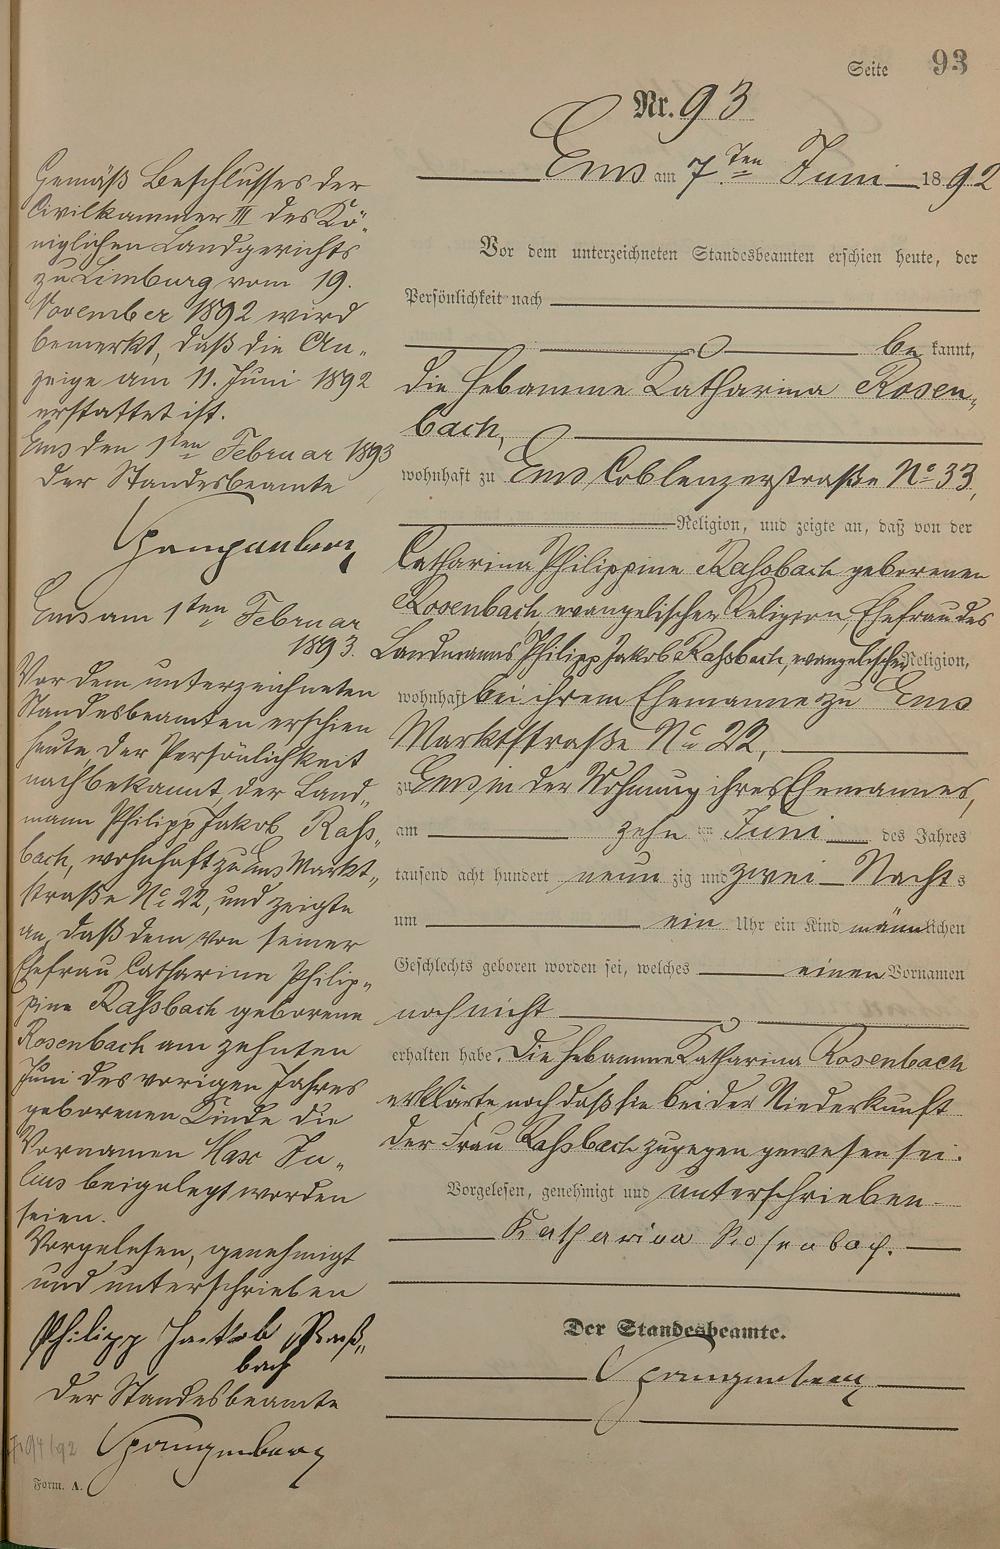 Seite 93
Nr. 93
Ems am 7ten Juni 1892
Vor dem unterzeichneten Standesbeamten erschien heute, der
Persönlichkeit nach
be kannt,
die Hebamme Katharina Rosen-
bach,
wohnhaft zu Ems Coblenzerstraße No 33,
Religion, und zeigte an, daß von der
Catharina Philippine Raßbach geborenen
Rosenbach, evangelischer Religion, Ehefrau des
Landmanns Philipp Jakob Raßbach, evangelischer Religion,
wohnhaft bei ihrem Ehemanne zu Ems
Marktstraße No 22,
zu Ems, in der Wohnung ihres Ehemannes,
am zehn ten Juni des Jahres
tausend acht hundert neun zig und zwei Nachts
um ein Uhr ein Kind männlichen
Geschlechts geboren worden sei, welches einen Vornamen
noch nicht
erhalten habe. Die Hebamme Katharina Rosenbach
erklärte noch daß sie bei der Niederkunft
der Frau Raßbach zugegen gewesen sei.
Vorgelesen, genehmigt und unterschrieben
Katharina Rosenbach.
Der Standesbeamte.
Spangenberg
Gemäß Beschlusses der
Civilkammer III des Kö-
niglichen Landgerichts
zu Limburg vom 19.
November 1892 wird
bemerkt, daß die An-
zeige am 11. Juni 1892
erstattet ist.
Ems den 1ten Februar 1893
Der Standesbeamte
Spangenberg
Ems am 1ten Februar
1893.
Vor dem unterzeichneten
Standesbeamten erschien
heute der Persönlichkeit
nach bekannt, der Land-
mann Philipp Jakob Raß-
bach, wohnhaft zu Ems Markt-
straße No 22, und zeigte
an, daß dem von seiner
Ehefrau Catharina Philip-
pine Raßbach geborene
Rosenbach am zehnten
Juni des vorigen Jahres
geborenen Kinde die
Vornamen Max Ju-
lius beigelegt worden
seien.
Vorgelesen, genehmigt
und unterschrieben
Philipp Jakob Raß-
bach
Der Standesbeamte
Spangenberg
Form. A.